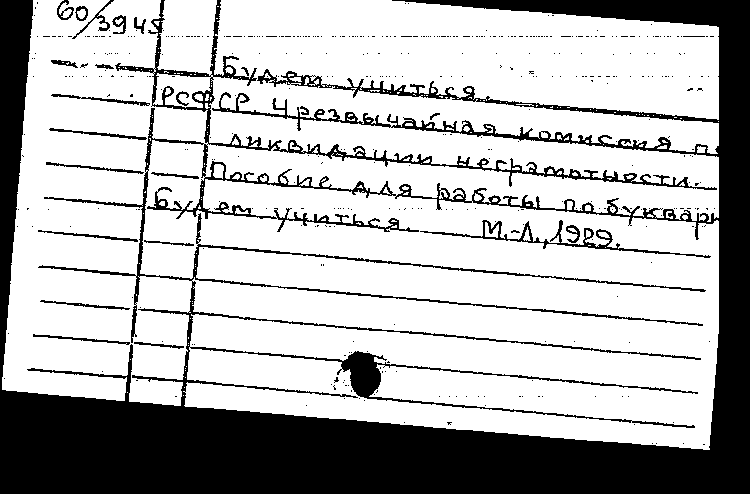 60/3945
Будет учиться.
РСФСР. Чрезвычайная комиссия п
ликвидации неграмотности.
Пособие для работы по буквар
Будет учиться. М.-Л., 1929.